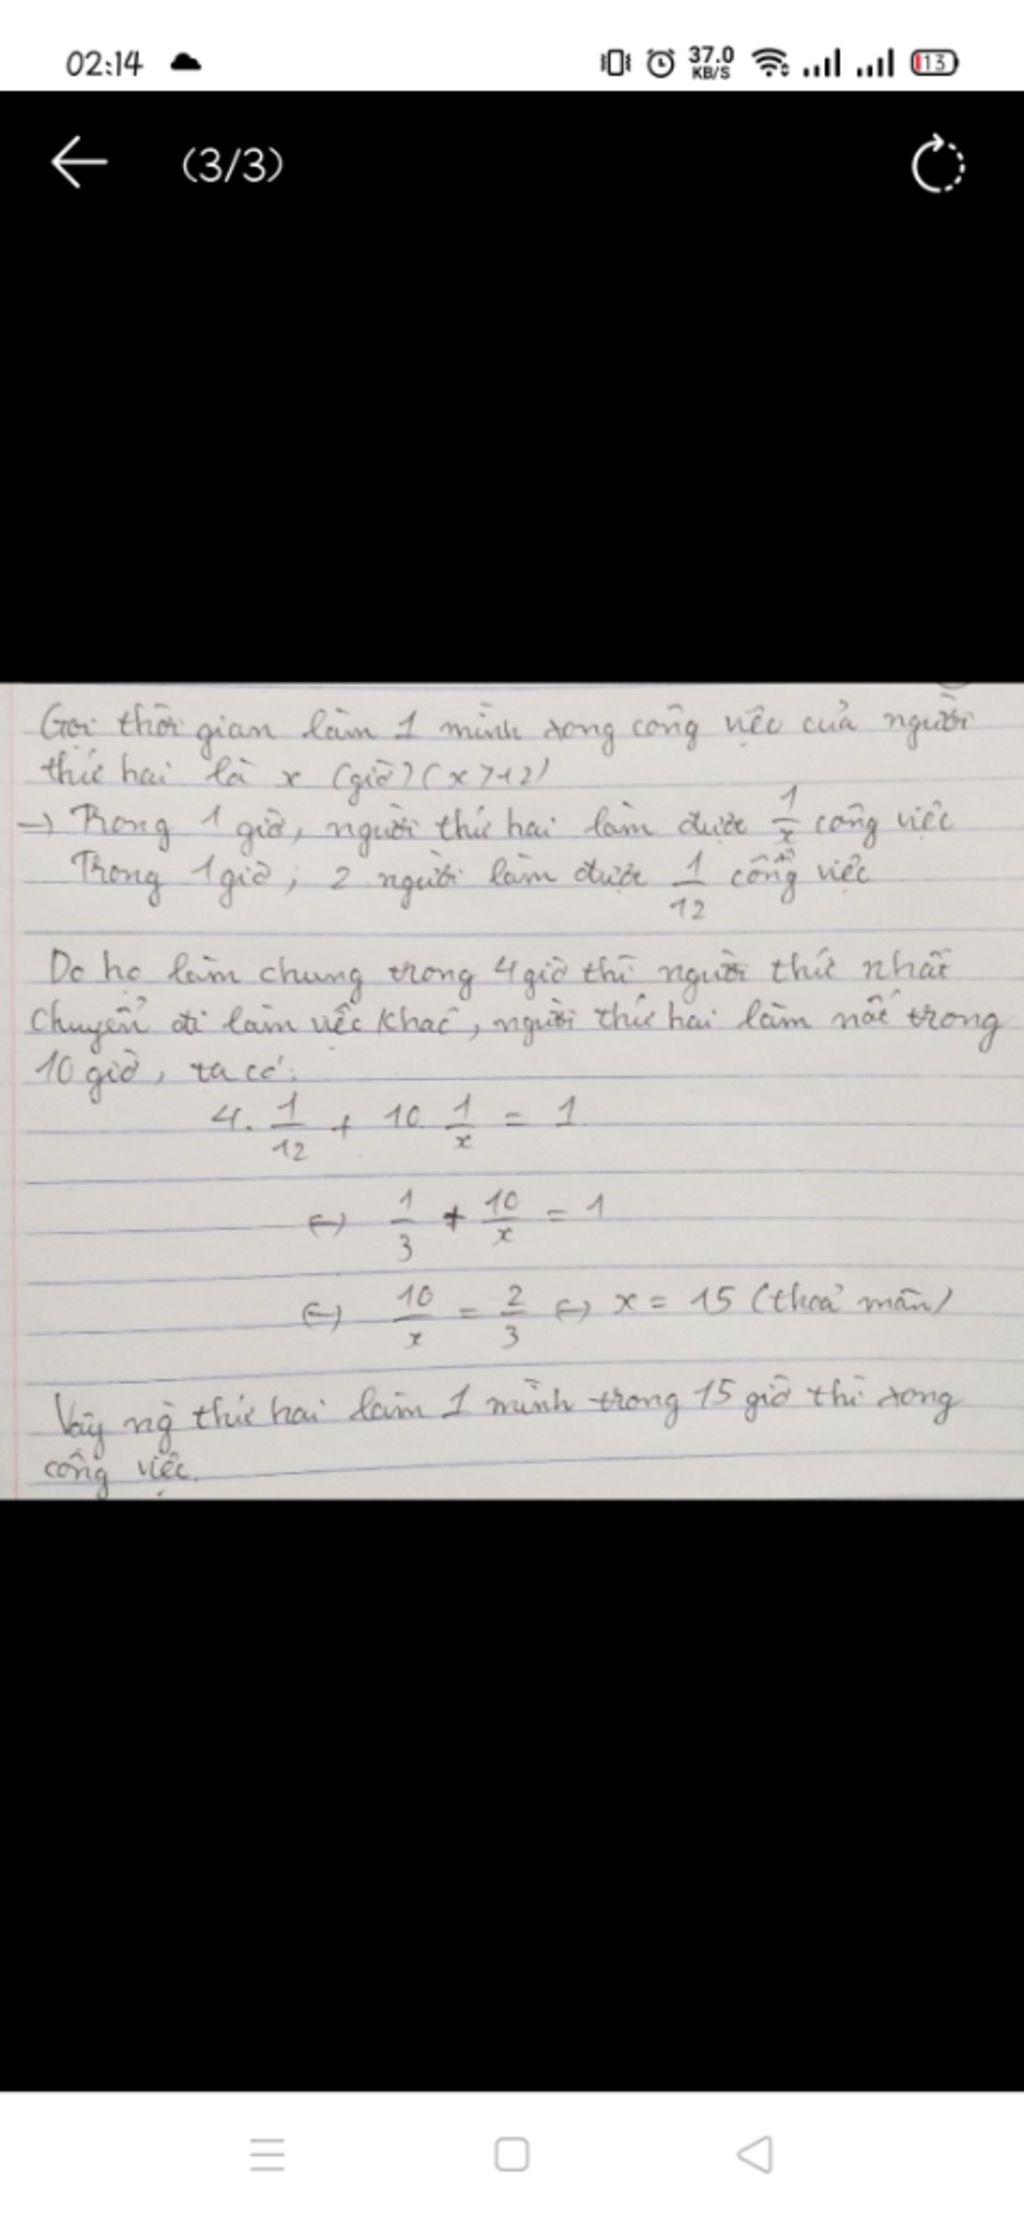 02:14
37.0 KB/S
13
(3/3)
Gọi thời gian làm 1 mình xong công việc của người
thứ hai là x (giờ) (x > 12)
→ Trong 1 giờ, người thứ hai làm được 1/x công việc
Trong 1 giờ, 2 người làm được 1/12 công việc
Do họ làm chung trong 4 giờ thì người thứ nhất
chuyển đi làm việc khác, người thứ hai làm nốt trong
10 giờ, ta có:
4. 1/12 + 10 1/x = 1
⇔ 1/3 + 10/x = 1
⇔ 10/x = 2/3 ⇔ x = 15 (thoả mãn)
Vậy ng thứ hai làm 1 mình trong 15 giờ thì xong
công việc.